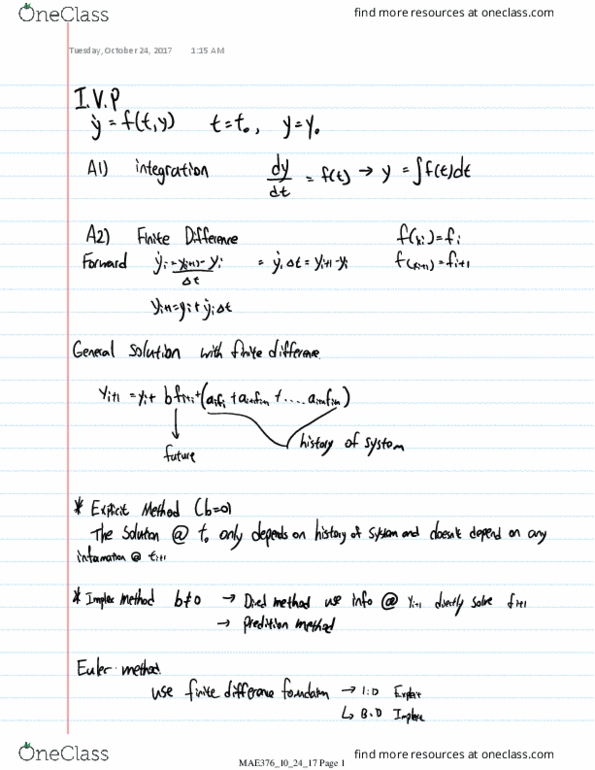 OneClass
find more resources at oneclass.com
Tuesday, October 24, 2017 1:15 AM
I.V.P
ẏ = f(t,y) t=t₀, y=y₀
A1) integration dy/dt = f(t) → y = ∫f(t)dt
A2) Finite Difference f(xᵢ)=fᵢ
Forward ẏᵢ = yᵢ₊₁ - yᵢ / Δt = ẏᵢ Δt = yᵢ₊₁ - yᵢ
yᵢ₊₁ = yᵢ + ẏᵢ Δt
General solution with finite difference
yᵢ₊₁ = yᵢ + b fᵢ₊₁ + (aᵢfᵢ +
future
history of system
* Explicit Method (b=0)
The Solution @ only depends on history of system and doesn't depend on any
information @ tᵢ₊₁
* method b≠0 → method use info @ yᵢ₊₁ directly solve fᵢ₊₁
→ method
Euler method
use finite difference →
↳ B.D
OneClass
find more resources at oneclass.com
MAE376_10_24_17 Page 1